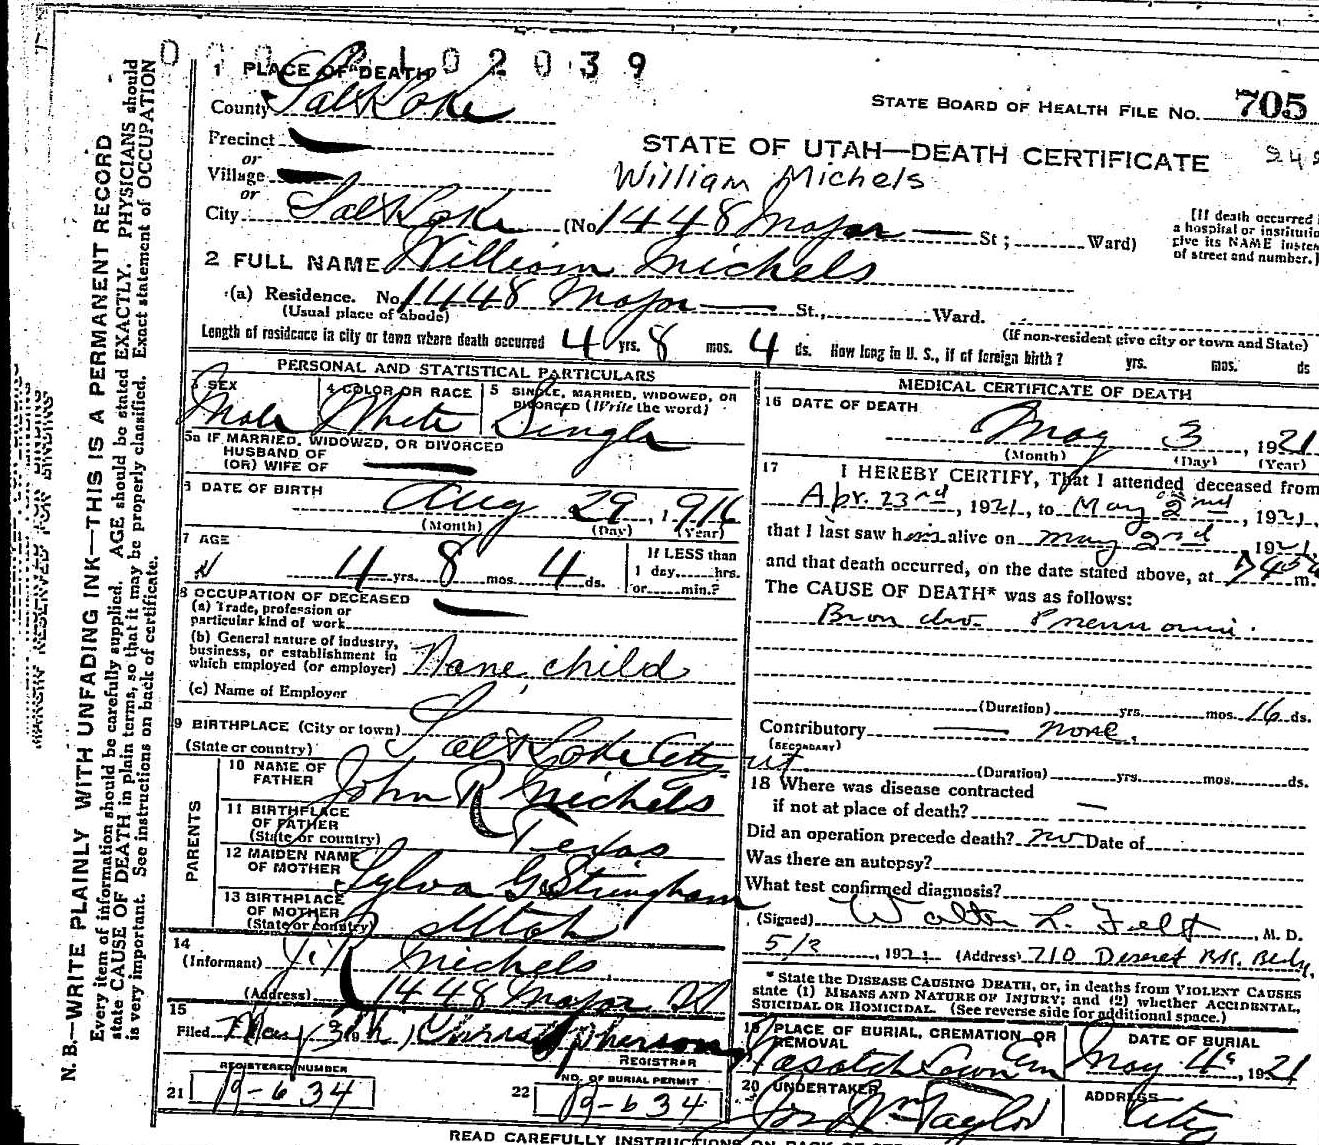 0 0 0 1 0 2 0 3 9
1 PLACE OF DEATH
County Salt Lake
STATE BOARD OF HEALTH FILE No. 705
Precinct
or
Village
or
STATE OF UTAH—DEATH CERTIFICATE
William Michels
City Salt Lake (No 1448 Major St; Ward)
[If death occurred
a hospital or institutio
give its NAME instea
of street and number.]
2 FULL NAME William Michels
(a) Residence. No. 1448 Major St., Ward.
(Usual place of abode) (If non-resident give city or town and State)
Length of residence in city or town where death occurred 4 yrs. 8 mos. 4 ds. How long in U. S., if of foreign birth? yrs. mos. ds
PERSONAL AND STATISTICAL PARTICULARS
3 SEX
Male
4 COLOR OR RACE
White
5 SINGLE, MARRIED, WIDOWED, OR
DIVORCED (Write the word)
Single
5a IF MARRIED, WIDOWED, OR DIVORCED
HUSBAND OF
(OR) WIFE OF
6 DATE OF BIRTH
Aug 29, 1916
(Month) (Day) (Year)
7 AGE
4 yrs. 8 mos. 4 ds.
If LESS than
1 day, hrs.
or min.?
8 OCCUPATION OF DECEASED
(a) Trade, profession or
particular kind of work
(b) General nature of industry,
business, or establishment in
which employed (or employer) None, child
(c) Name of Employer
9 BIRTHPLACE (City or town)
(State or country) Salt Lake City ut
PARENTS
10 NAME OF
FATHER John R Michels
11 BIRTHPLACE
OF FATHER
(State or country) Texas
12 MAIDEN NAME
OF MOTHER Sylva G. Stringham
13 BIRTHPLACE
OF MOTHER
(State or country) Utah
14
(Informant) J. R Michels
(Address) 1448 Major St
15
Filed May 3
REGISTRAR
REGISTERED NUMBER
21 19-634
NO. OF BURIAL PERMIT
22 19-634
MEDICAL CERTIFICATE OF DEATH
16 DATE OF DEATH
May 3, 1921
(Month) (Day) (Year)
17 I HEREBY CERTIFY, That I attended deceased from
Apr. 23rd, 1921, to May 2nd, 1921,
that I last saw him alive on May 2nd 1921,
and that death occurred, on the date stated above, at m.
The CAUSE OF DEATH* was as follows:
Broncho- Pneumonia.
(Duration) yrs. mos. 16 ds.
Contributory none.
(SECONDARY)
(Duration) yrs. mos. ds.
18 Where was disease contracted
if not at place of death? —
Did an operation precede death? no Date of
Was there an autopsy?
What test confirmed diagnosis?
(Signed) Walter L. Felt, M. D.
5/3, 1921. (Address) 710 Deseret Bk. Bldg.
* State the DISEASE CAUSING DEATH, or, in deaths from VIOLENT CAUSES
state (1) MEANS AND NATURE OF INJURY; and (2) whether ACCIDENTAL,
SUICIDAL OR HOMICIDAL. (See reverse side for additional space.)
19 PLACE OF BURIAL, CREMATION OR
REMOVAL
Wasatch Lawn Cem
DATE OF BURIAL
May 4, 1921
20 UNDERTAKER
Jos Wm Taylor
ADDRESS
City
READ CAREFULLY INSTRUCTIONS ON BACK OF
N. B.—WRITE PLAINLY WITH UNFADING INK—THIS IS A PERMANENT RECORD
Every item of information should be carefully supplied. AGE should be stated EXACTLY. PHYSICIANS should
state CAUSE OF DEATH in plain terms, so that it may be properly classified. Exact statement of OCCUPATION
is very important. See instructions on back of certificate.
MARGIN RESERVED FOR BINDING